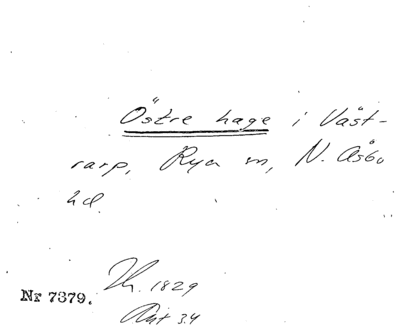 Östre hage i Väst-
rarp, Rya sn, N. Åsbo
hd.
Nr 7379.
1829
Akt 34